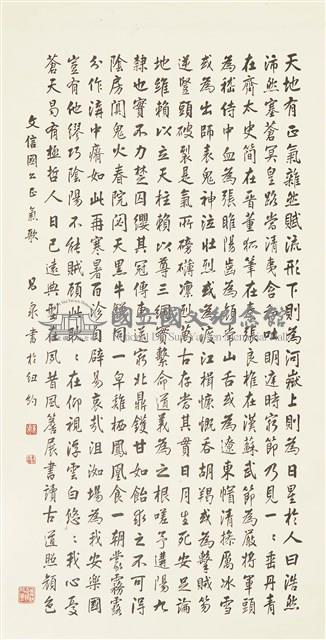 天地有正氣雜然賦流形下則為河嶽上則為日星於人曰浩然
沛然塞蒼冥皇路當清夷含和吐明廷時窮節乃見一:垂丹青
在齊太史簡在晉董狐筆在秦張良椎在漢蘇武節為嚴將軍頭
為嵇侍中血為張睢陽齒為顏常山舌或為遼東帽清操厲冰雪
或為出師表鬼神泣壯烈或為渡江楫慷慨吞胡羯或為擊賊笏
逆豎頭破裂是氣所磅礴凜烈萬古存當其貫日月生死安足論
地維賴以立天柱賴以尊三綱實繫命道義為之根嗟予遘陽九
隸也實不力楚囚纓其冠傳車送窮北鼎鑊甘如飴求之不可得
陰房闃鬼火春院閟天黑牛驥同一皁雞栖鳳凰食一朝蒙霧露
分作溝中瘠如此再寒暑百沴自辟易哀哉沮洳場為我安樂國
豈有他繆巧陰陽不能賊顧此耿:在仰視浮雲白悠:我心憂
蒼天曷有極哲人日已遠典型在夙昔風簷展書讀古道照顏色
文信國公正氣歌 書於紐約
國立國父紀念館